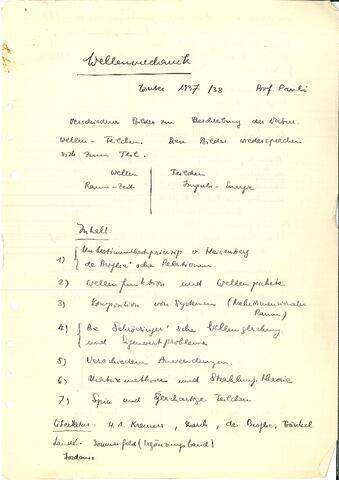 Wellenmechanik
Winter 1937/38 Prof. Pauli
Verschiedene Bilder zur Beschreibung der Natur.
Wellen - Teilchen. Diese Bilder widersprechen
sich zum Teil.
Wellen Teilchen
Raum-Zeit Impuls-Energie
Inhalt:
1) { Unbestimmtheitsprinzip v. Heisenberg
de Broglie'sche Relationen
2) Wellenfunktion und Wellenpakete
3) Komposition von Systemen (Mehrdimensionaler
Raum)
4) { Die Schrödinger'sche Wellengleichung
und Eigenwertprobleme
5) Verschiedene Anwendungen.
6) Matrixmethode und Strahlungstheorie
7) Spin und gleichartige Teilchen
Literatur: H. A. Kramers, de Broglie, Frenkel
Sommerfeld (Ergänzungsband)
Jordan